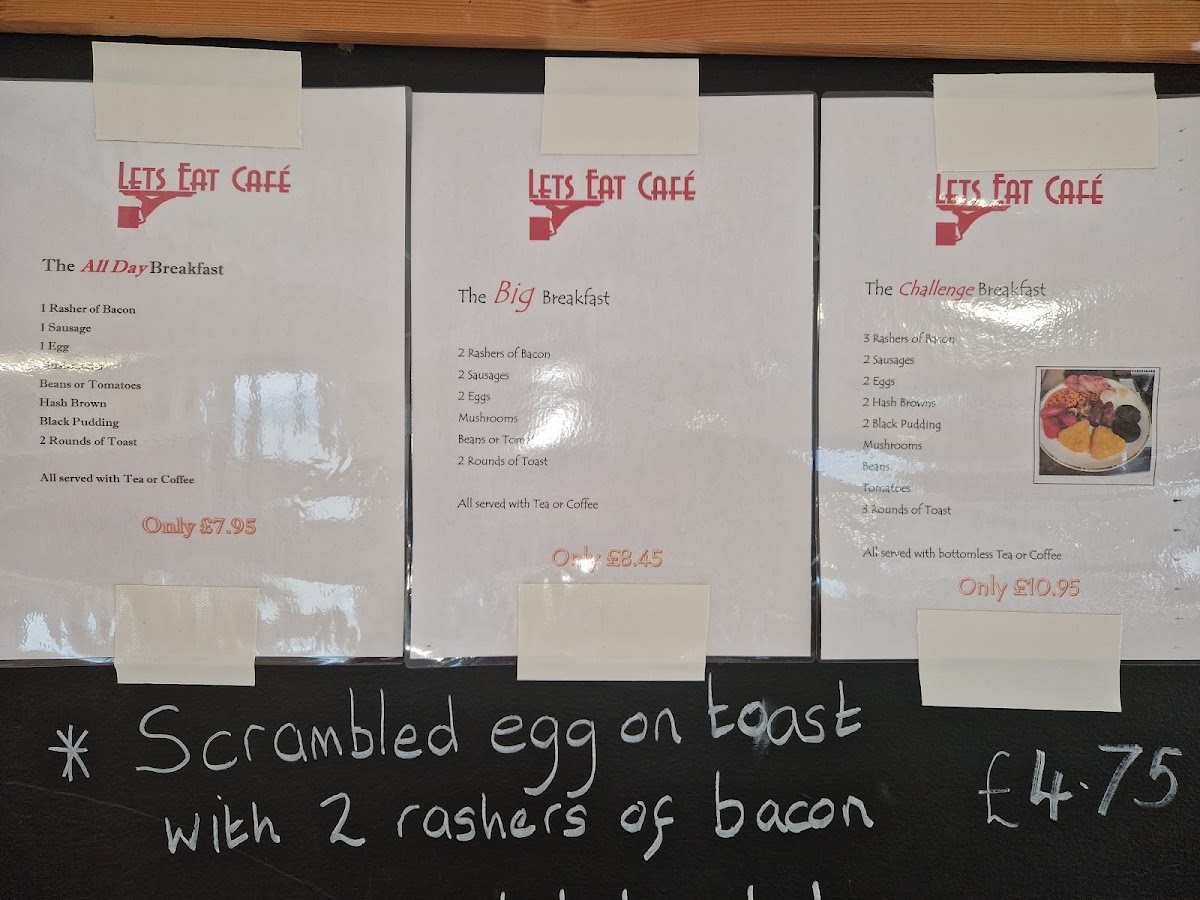 LETS EAT CAFÉ
The All Day Breakfast
1 Rasher of Bacon
1 Sausage
1 Egg
Beans or Tomatoes
Hash Brown
Black Pudding
2 Rounds of Toast
All served with Tea or Coffee
Only £7.95
LETS EAT CAFÉ
The Big Breakfast
2 Rashers of Bacon
2 Sausages
2 Eggs
Mushrooms
Beans or
2 Rounds of Toast
All served with Tea or Coffee
Only £8.45
LETS EAT CAFÉ
The Challenge Breakfast
3 Rashers of Bacon
2 Sausages
2 Eggs
2 Hash Browns
2 Black Pudding
Mushrooms
Beans
Tomatoes
3 Rounds of Toast
All served with bottomless Tea or Coffee
Only £10.95
* Scrambled egg on toast
with 2 rashers of bacon £4.75